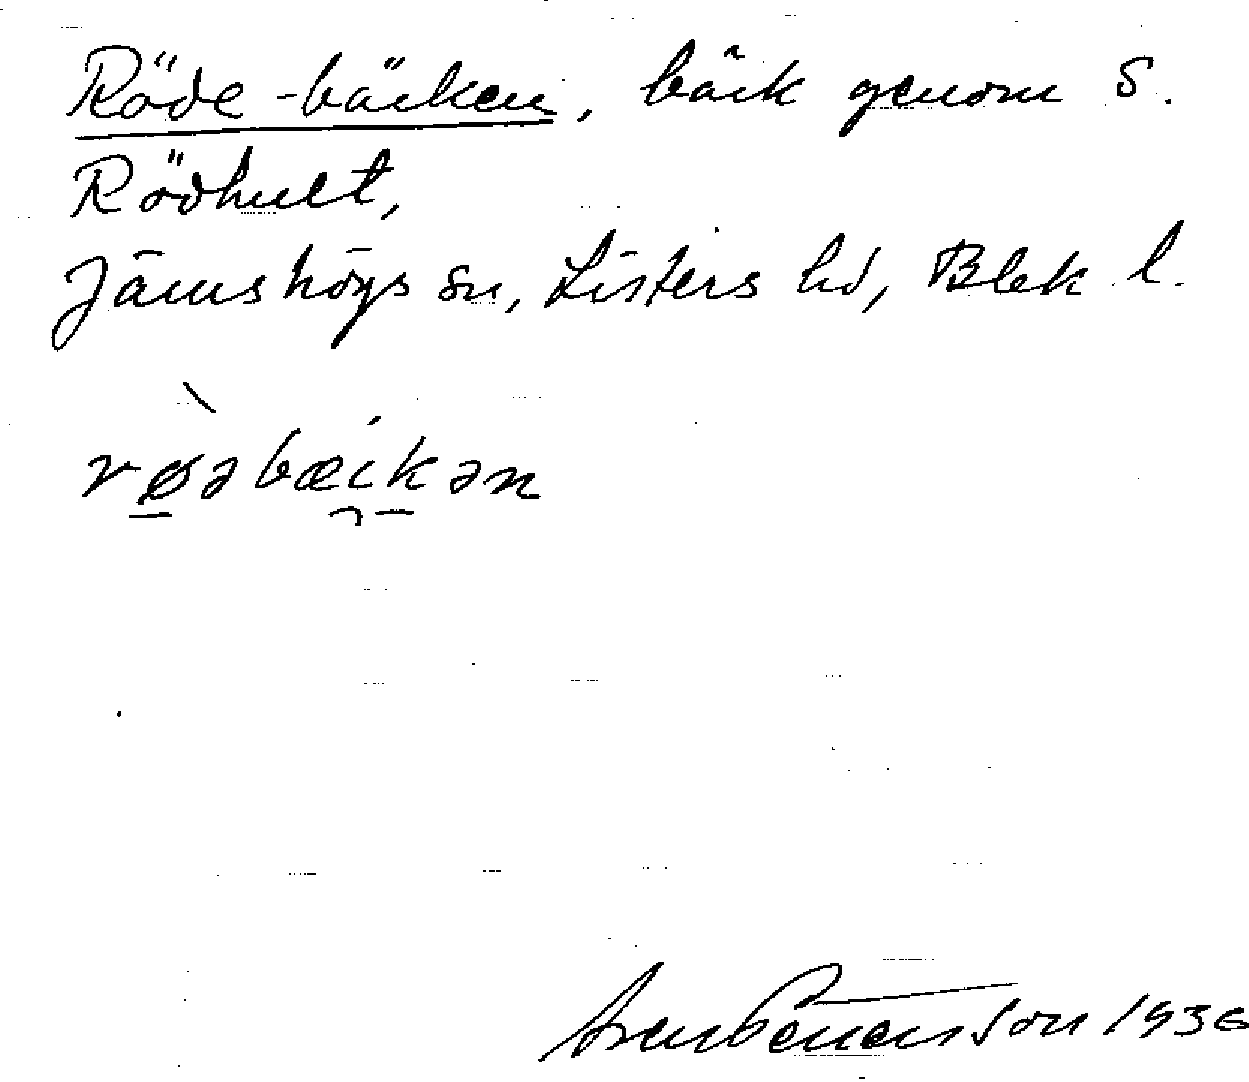 Röde-bäcken, bäck genom S.
Rödhult,
Jämshögs sn, Listers hd, Blek l.
røəbæikən
Sven Benson 1936